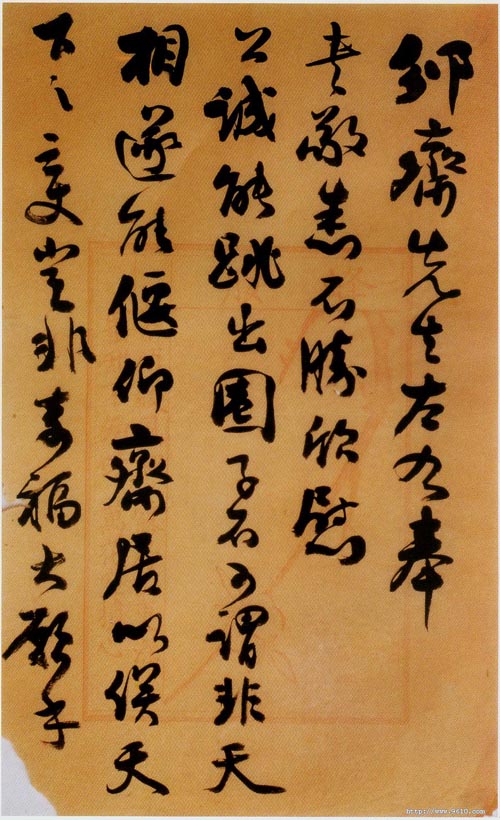 齋先生左右奉
書敬悉不勝欣慰
公誠能跳出圈子不可謂非天
相遂能偃仰齋居以俟天
下之變豈非奇福大願乎
http://www.9610.com